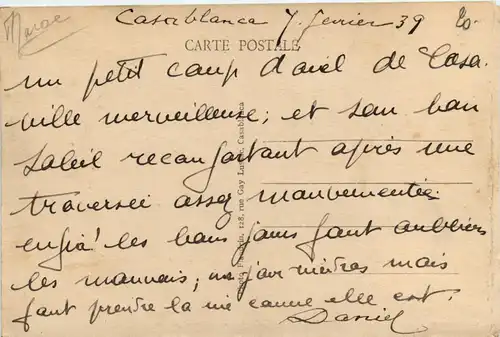 Maroc
Casablanca 7. fevrier 39
20-
CARTE POSTALE
un petit coup d'oeil de Casa.
ville merveilleuse; et son bon
soleil reconfortant après une
traversée assez mouvementée
enfin! les bons jours font oublier
les mauvais; mais
faut prendre la vie comme elle est.
Daniel
128, rue Gay Lussac, Casablanca